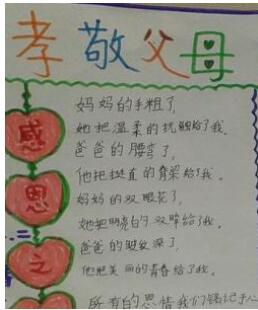 孝敬父母
感
恩
之
妈妈的手粗了,
她把温柔的抚触给了我。
爸爸的腰弯了,
他把挺直的脊梁给了我。
妈妈的双眼花了,
她把明亮的双眸给了我。
爸爸的皱纹深了,
他把美丽的青春给了我。
所有的恩情我们铭记于心